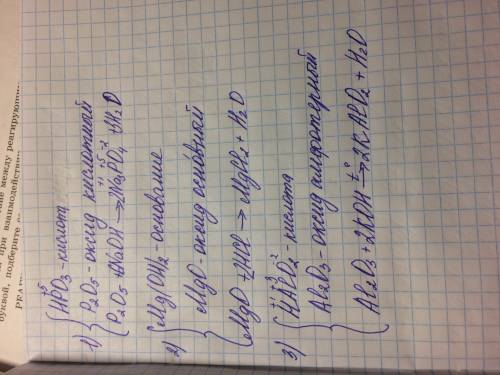 тве между реагирующи
и при взаимодействии
буквой, подберите
РЕАГ
+5
HPO₃ - кислота
1) P₂O₅ - оксид кислотный
+1 +5 -2
P₂O₅ + NaOH → 2Na₃PO₄ + H₂O
Mg(OH)₂ - основание
2) MgO - оксид основный
MgO + 2HCl → MgCl₂ + H₂O
+1 +3 -2
3) HAlO₂ - кислота
Al₂O₃ - оксид амфотерный
Al₂O₃ + 2KOH → 2KAlO₂ + H₂O